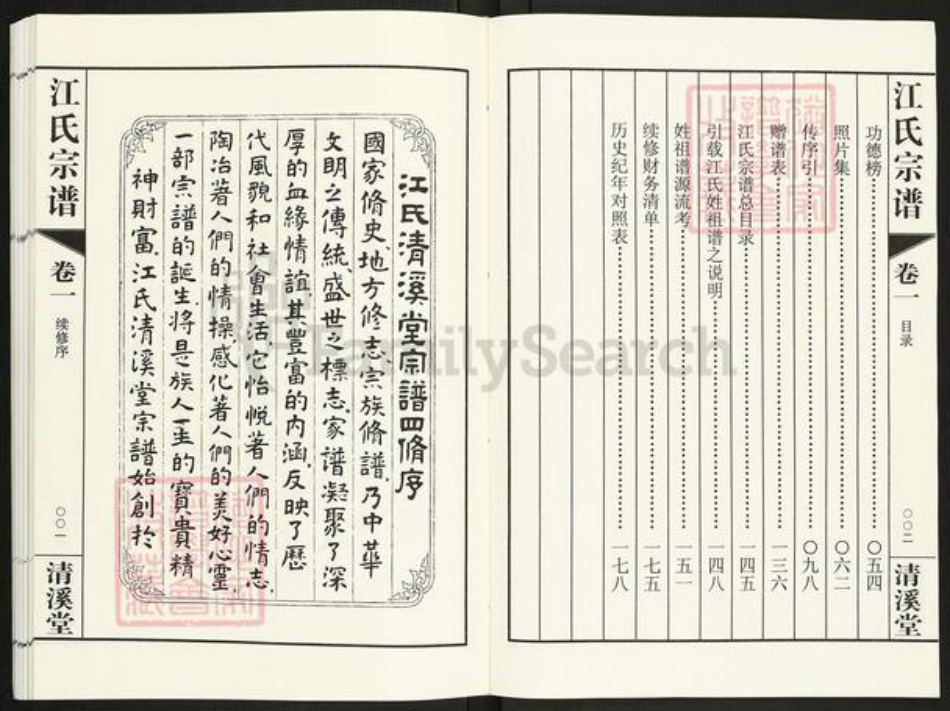 江氏宗谱
卷一
目录
〇〇二
清溪堂
功德榜 〇五四
照片集 〇六二
传序引 〇九八
赠谱表 一三六
江氏宗谱总目录 一四五
引载江氏姓祖谱之说明 一四八
姓祖谱源流考 一五一
续修财务清单 一七五
历史纪年对照表 一七八
江氏清溪堂宗譜四脩序
國家脩史、地方修志、宗族脩譜、乃中華
文明之傳統、盛世之標志、家譜凝聚了深
厚的血緣情誼、其豐富的内涵、反映了歷
代風貌和社會生活、它怡悦著人們的情志、
陶冶著人們的情操、感化著人們的美好心靈
一部宗譜的誕生將是族人一生的寶貴精
神財富、江氏清溪堂宗譜始創於
江氏宗谱
卷一
续修序
〇〇一
清溪堂
FamilySearch